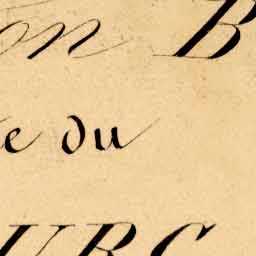 on B
e du
URG